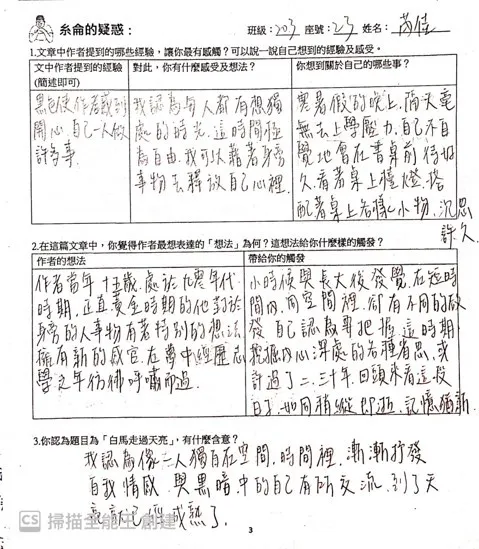 糸侖的疑惑：
班級：203 座號：23 姓名：芮佳
1.文章中作者提到的哪些經驗，讓你最有感觸？可以說一說自己想到的經驗及感受。
文中作者提到的經驗
(簡述即可)
對此，你有什麼感受及想法？
你想到關於自己的哪些事？
黑色使作者感到
開心，自己一人做
許多事
我認為每人都有想獨
處的時光，這時間極
為自由，我可以藉著身旁
事物去釋放自己心裡
寒暑假的晚上，隔天毫
無去上學壓力，自己不自
覺地會在書桌前待好
久，看著桌上檯燈，搭
配著桌上各樣小物，沉思
許久
2.在這篇文章中，你覺得作者最想表達的「想法」為何？這想法給你什麼樣的觸發？
作者的想法
帶給你的觸發
作者當年十五歲，處於九零年代
時期，正直黃金時期的他對於
身旁的人事物有著特別的想法
擁有新的感官，在夢中經歷
學之年彷彿呼嘯而過
小時候與長大後發覺，在短時
間內，同空間裡，卻有不同的啟
發，自己認為要把握這時期
挖掘內心深處的各種省思，或
許過了二、三十年，回頭來看這段
日子，如同稍縱即逝，記憶猶新
3.你認為題目為「白馬走過天亮」，有什麼含意？
我認為像一人獨自在空間，時間裡，漸漸抒發
自我情感，與黑暗中的自己有所交流，到了天
亮，成熟了
CS 掃描全能王 創建
3